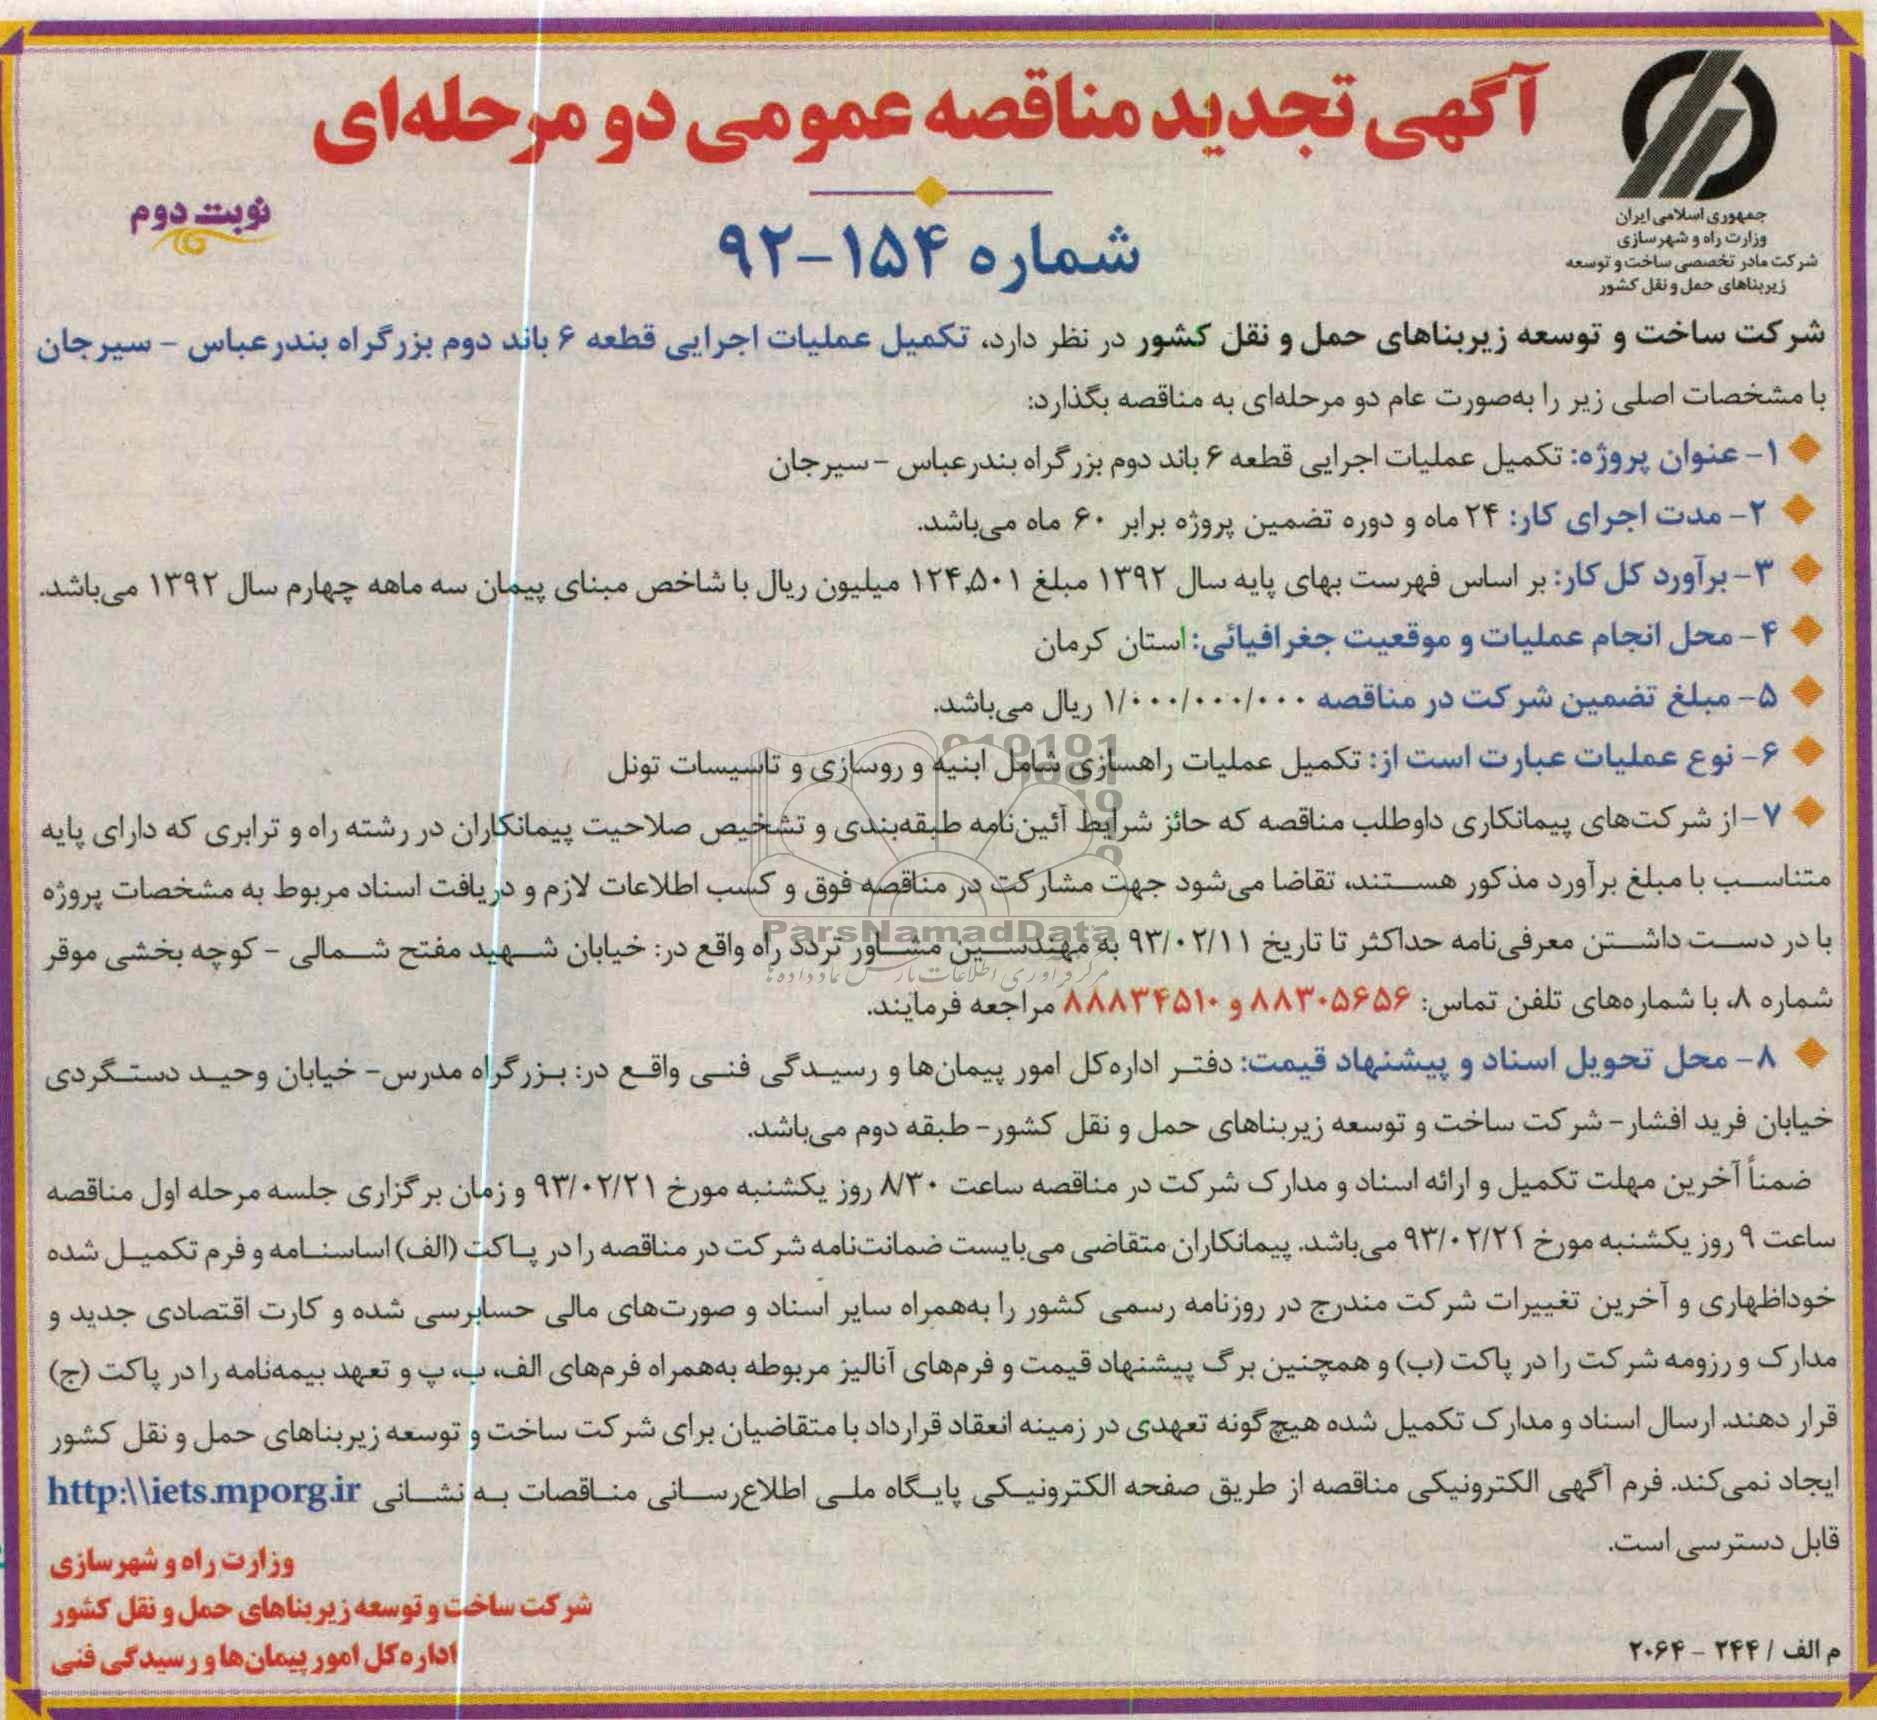 آگهی تجدید مناقصه عمومی دو مرحله‌ای
جمهوری اسلامی ایران
وزارت راه و شهرسازی
شرکت مادر تخصصی ساخت و توسعه
زیربناهای حمل و نقل کشور
نوبت دوم
شماره ۱۵۴-۹۲
شرکت ساخت و توسعه زیربناهای حمل و نقل کشور در نظر دارد، تکمیل عملیات اجرایی قطعه ۶ باند دوم بزرگراه بندرعباس - سیرجان
با مشخصات اصلی زیر را به‌صورت عام دو مرحله‌ای به مناقصه بگذارد:
۱- عنوان پروژه: تکمیل عملیات اجرایی قطعه ۶ باند دوم بزرگراه بندرعباس - سیرجان
۲- مدت اجرای کار: ۲۴ ماه و دوره تضمین پروژه برابر ۶۰ ماه می‌باشد.
۳- برآورد کل کار: بر اساس فهرست بهای پایه سال ۱۳۹۲ مبلغ ۱۲۴,۵۰۱ میلیون ریال با شاخص مبنای پیمان سه ماهه چهارم سال ۱۳۹۲ می‌باشد.
۴- محل انجام عملیات و موقعیت جغرافیائی: استان کرمان
۵- مبلغ تضمین شرکت در مناقصه ۱/۰۰۰/۰۰۰/۰۰۰ ریال می‌باشد.
۶- نوع عملیات عبارت است از: تکمیل عملیات راهسازی شامل ابنیه و روسازی و تاسیسات تونل
۷- از شرکت‌های پیمانکاری داوطلب مناقصه که حائز شرایط آئین‌نامه طبقه‌بندی و تشخیص صلاحیت پیمانکاران در رشته راه و ترابری که دارای پایه
متناسب با مبلغ برآورد مذکور هستند، تقاضا می‌شود جهت مشارکت در مناقصه فوق و کسب اطلاعات لازم و دریافت اسناد مربوط به مشخصات پروژه
ParsNamadData
با در دست داشتن معرفی‌نامه حداکثر تا تاریخ ۹۳/۰۲/۱۱ به مهندسین مشاور تردد راه واقع در: خیابان شهید مفتح شمالی - کوچه بخشی موقر
مرکز فرآوری اطلاعات پارس نماد داده‌ها
شماره ۸، با شماره‌های تلفن تماس: ۸۸۳۰۵۶۵۶ و ۸۸۸۳۴۵۱۰ مراجعه فرمایند.
۸- محل تحویل اسناد و پیشنهاد قیمت: دفتر اداره‌کل امور پیمان‌ها و رسیدگی فنی واقع در: بزرگراه مدرس- خیابان وحید دستگردی
خیابان فرید افشار- شرکت ساخت و توسعه زیربناهای حمل و نقل کشور- طبقه دوم می‌باشد.
ضمناً آخرین مهلت تکمیل و ارائه اسناد و مدارک شرکت در مناقصه ساعت ۸/۳۰ روز یکشنبه مورخ ۹۳/۰۲/۲۱ و زمان برگزاری جلسه مرحله اول مناقصه
ساعت ۹ روز یکشنبه مورخ ۹۳/۰۲/۲۱ می‌باشد. پیمانکاران متقاضی می‌بایست ضمانت‌نامه شرکت در مناقصه را در پاکت (الف) اساسنامه و فرم تکمیل شده
خوداظهاری و آخرین تغییرات شرکت مندرج در روزنامه رسمی کشور را به‌همراه سایر اسناد و صورت‌های مالی حسابرسی شده و کارت اقتصادی جدید و
مدارک و رزومه شرکت را در پاکت (ب) و همچنین برگ پیشنهاد قیمت و فرم‌های آنالیز مربوطه به‌همراه فرم‌های الف، ب، پ و تعهد بیمه‌نامه را در پاکت (ج)
قرار دهند. ارسال اسناد و مدارک تکمیل شده هیچ‌گونه تعهدی در زمینه انعقاد قرارداد با متقاضیان برای شرکت ساخت و توسعه زیربناهای حمل و نقل کشور
ایجاد نمی‌کند. فرم آگهی الکترونیکی مناقصه از طریق صفحه الکترونیکی پایگاه ملی اطلاع‌رسانی مناقصات به نشانی http:\\iets.mporg.ir
قابل دسترسی است.
وزارت راه و شهرسازی
شرکت ساخت و توسعه زیربناهای حمل و نقل کشور
اداره کل امور پیمان‌ها و رسیدگی فنی
م الف / ۲۴۴ - ۲۰۶۴